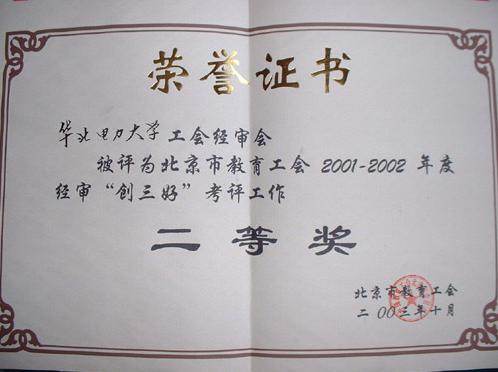 荣誉证书
华北电力大学工会经审会
被评为北京市教育工会 2001-2002 年度
经审“创三好”考评工作
二等奖
北京市教育工会
二00三年十月